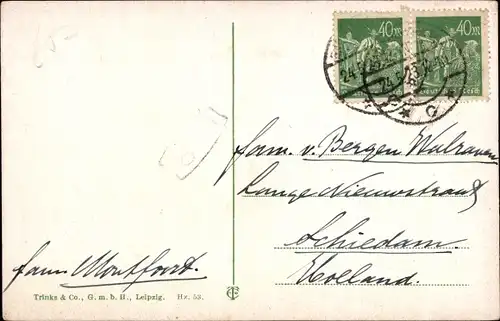 40 M 40 M
24.5.23
24.5.23
fam. v. Bergen Walraven
Lange Nieuwstraat
Schiedam.
Holland.
fam. Montfoort.
Trinks & Co., G. m. b. H., Leipzig. Hz. 53.